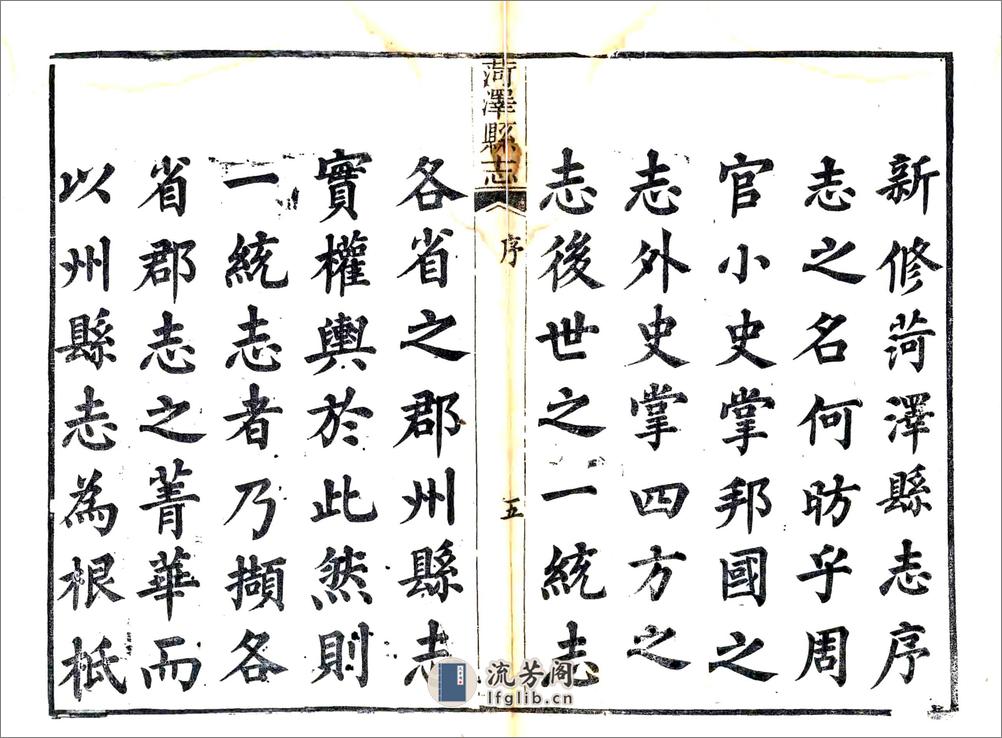 新修菏澤縣志序
志之名何昉乎周
官小史掌邦國之
志外史掌四方之
志後世之一統志
菏澤縣志
序
五
各省之郡州縣志
實權輿於此然則
一統志者乃擷各
省郡志之菁華而
以州縣志為根柢
流芳阁
lfglib.cn